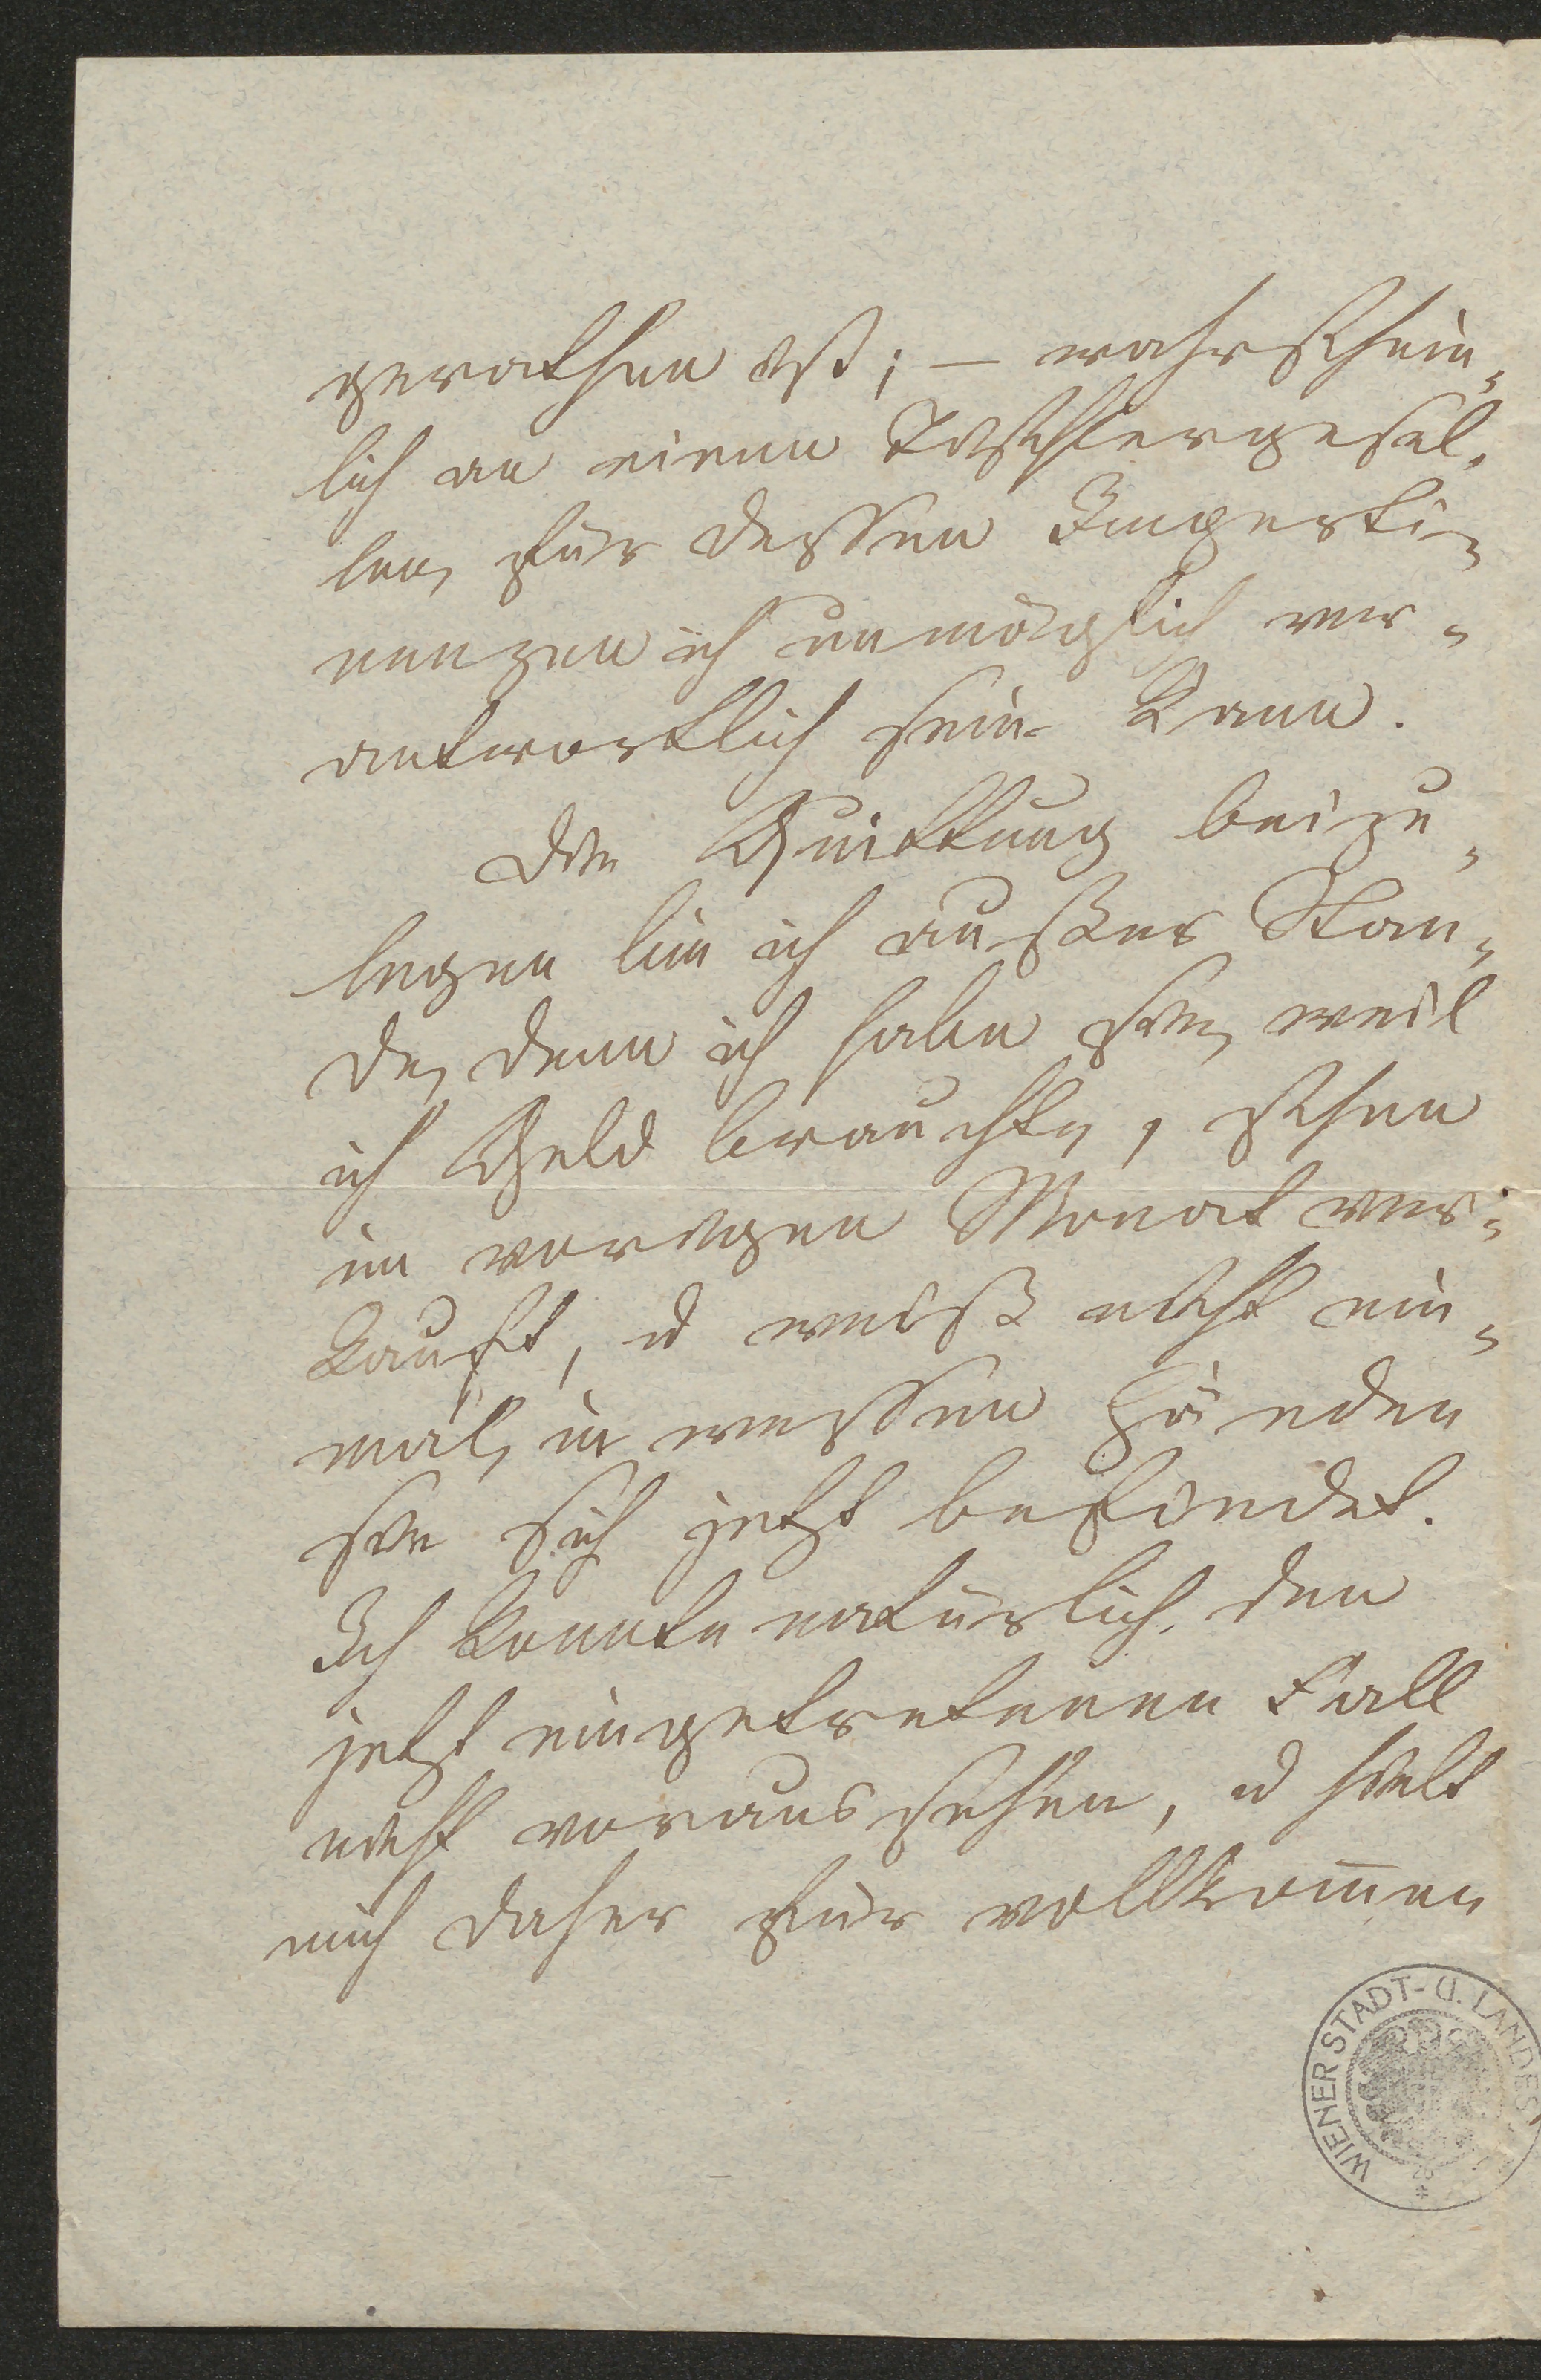 gerathen ist; – wahrschein-
lich an einen Tischlergesel-
len, für dessen Imperti-
nenzen ich unmöglich ver-
antwortlich sein kann.
Die Quittung beizu-
legen bin ich außer Stan-
de, denn ich habe sie, weil
ich Geld brauchte, schon
im vorigen Monat ver-
kauft, u weiß nicht ein-
mal, in wessen Händen
sie sich jetzt befindet.
Ich konnte natürlich den
jetzt eingetretenen Fall
nicht voraussehen, u hielt
mich daher für vollkom̅en
WIENER STADT- U. LANDES